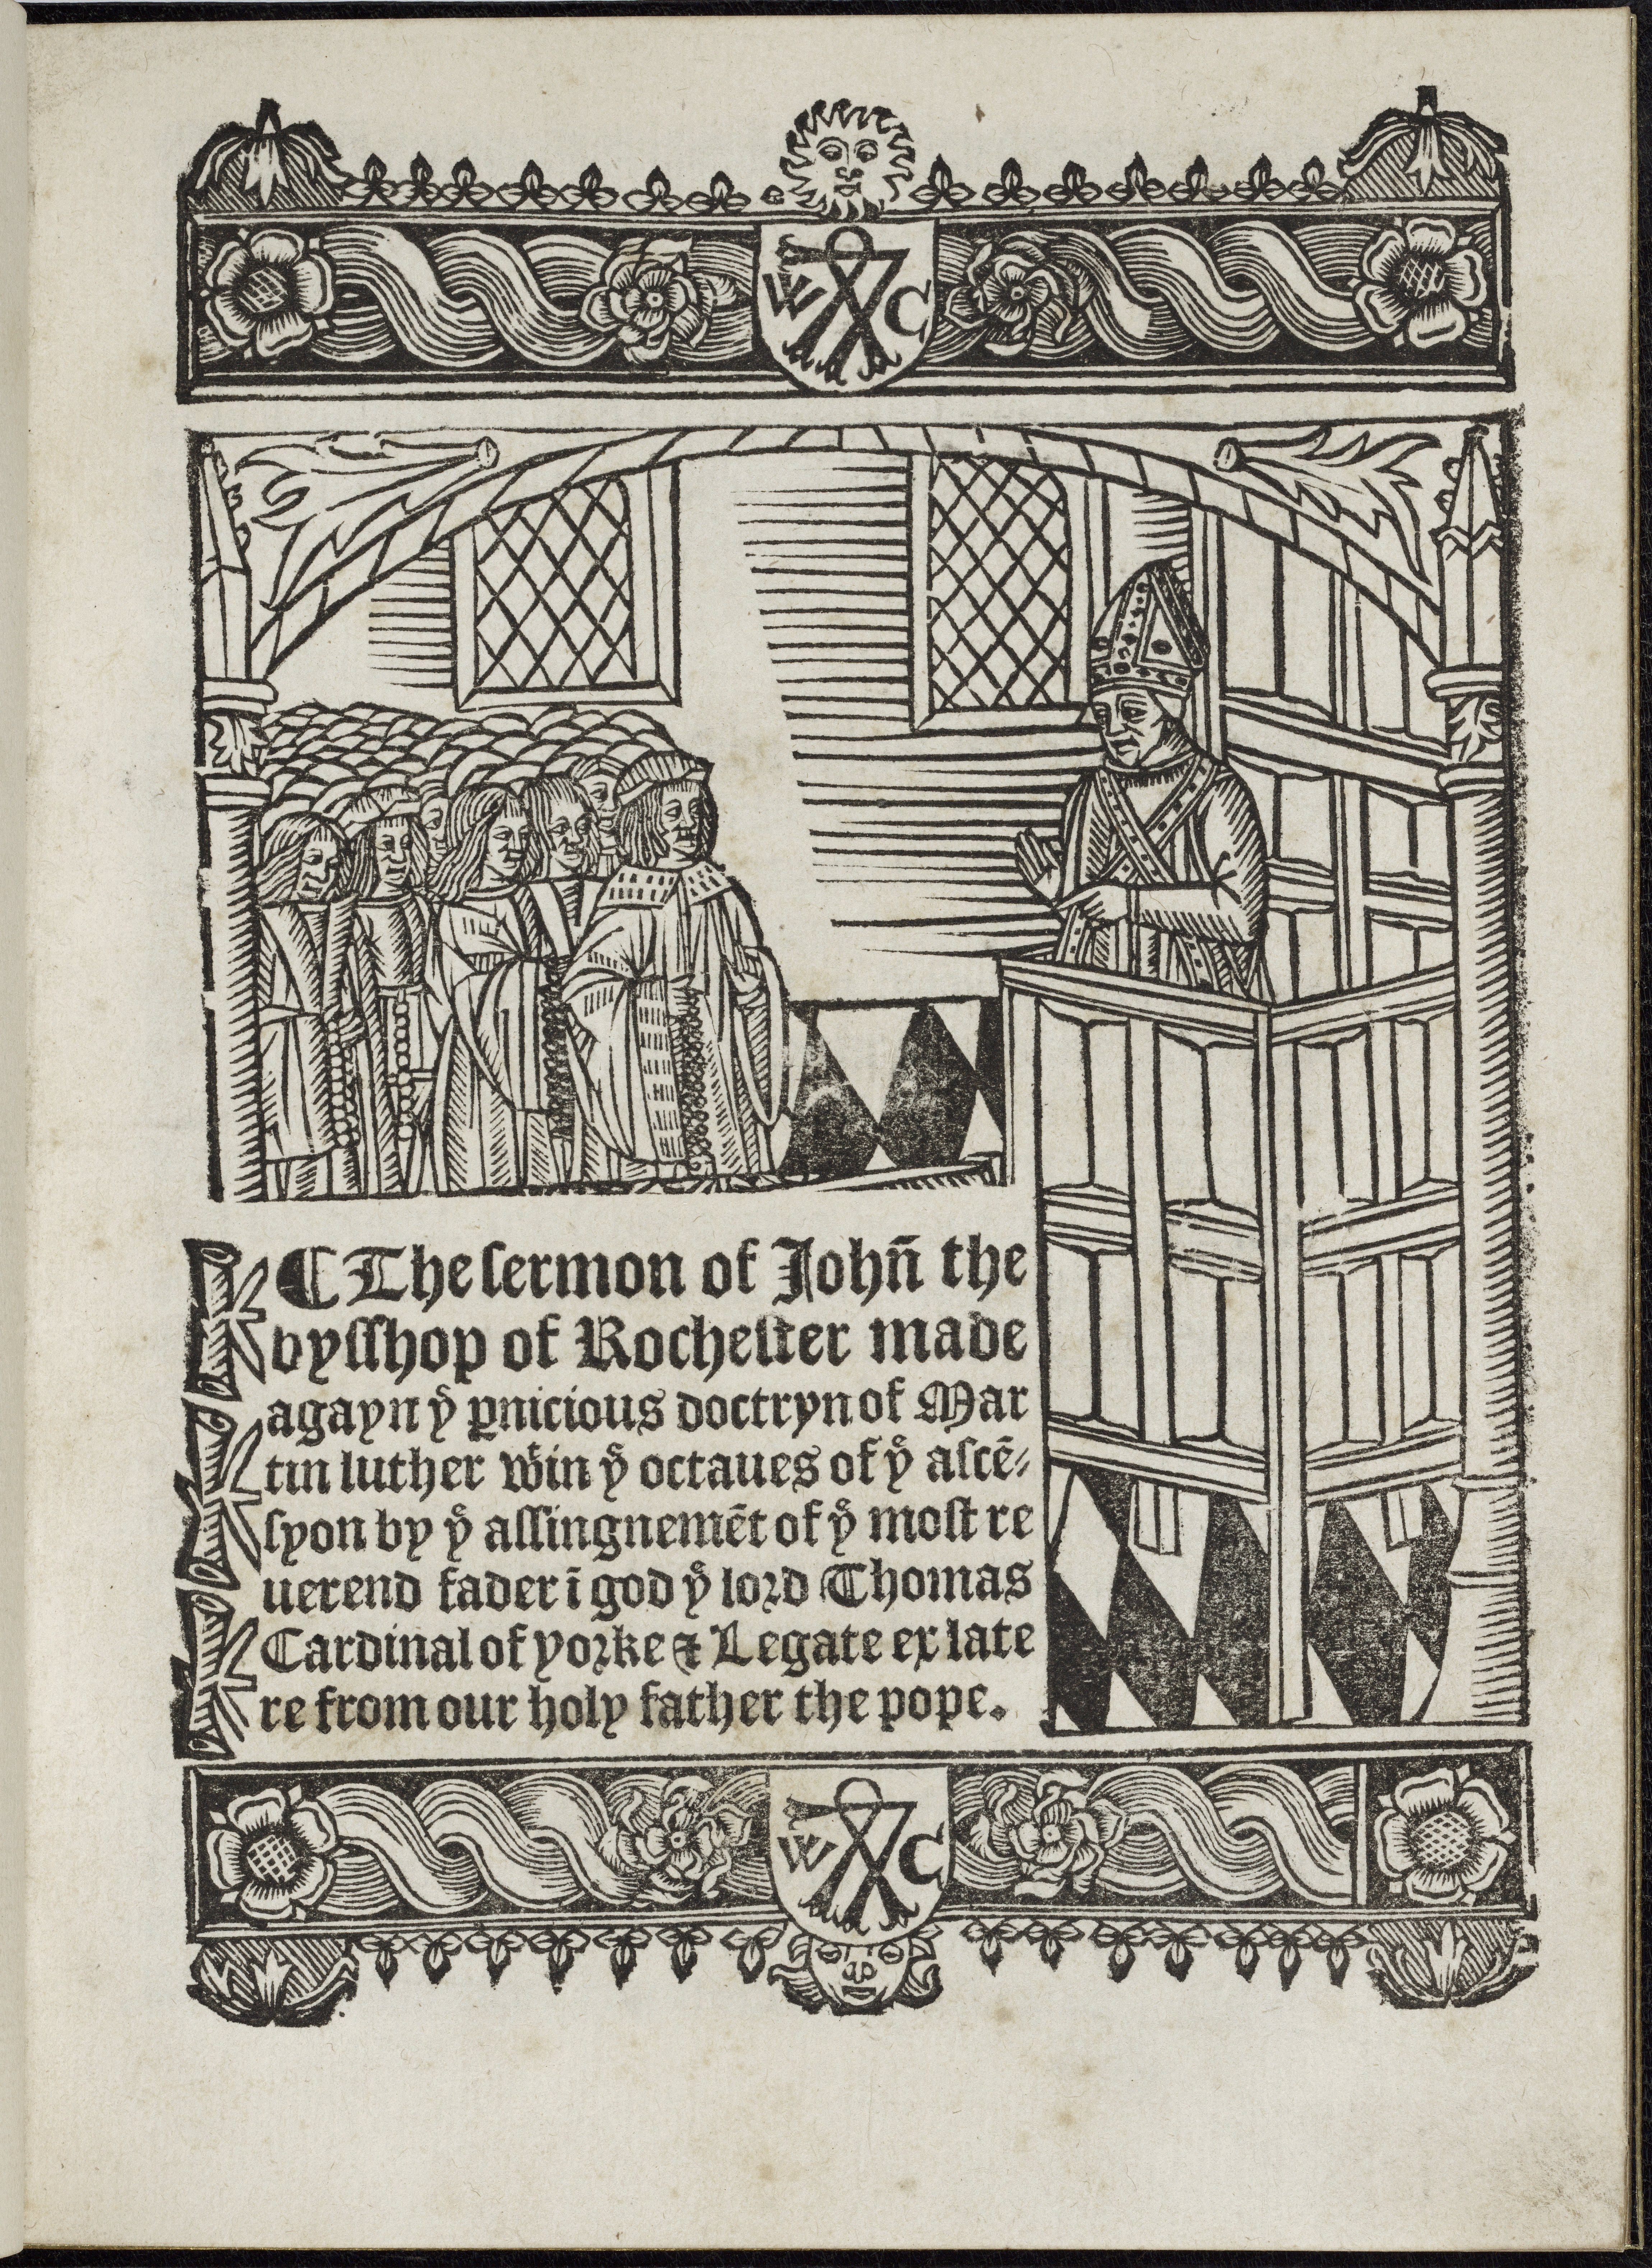 W C
¶ The sermon of Johñ the
bysshop of Rochester made
agayn yͤ ꝑnicious doctryn of Mar
tin luther wͭin yͤ octaues of yͤ ascē⸗
syon by yͤ assingnemēt of yͤ most re
uerend fader ī god yͤ lord Thomas
Cardinal of yorke ⁊ Legate ex late
re from our holy father the pope.
W C